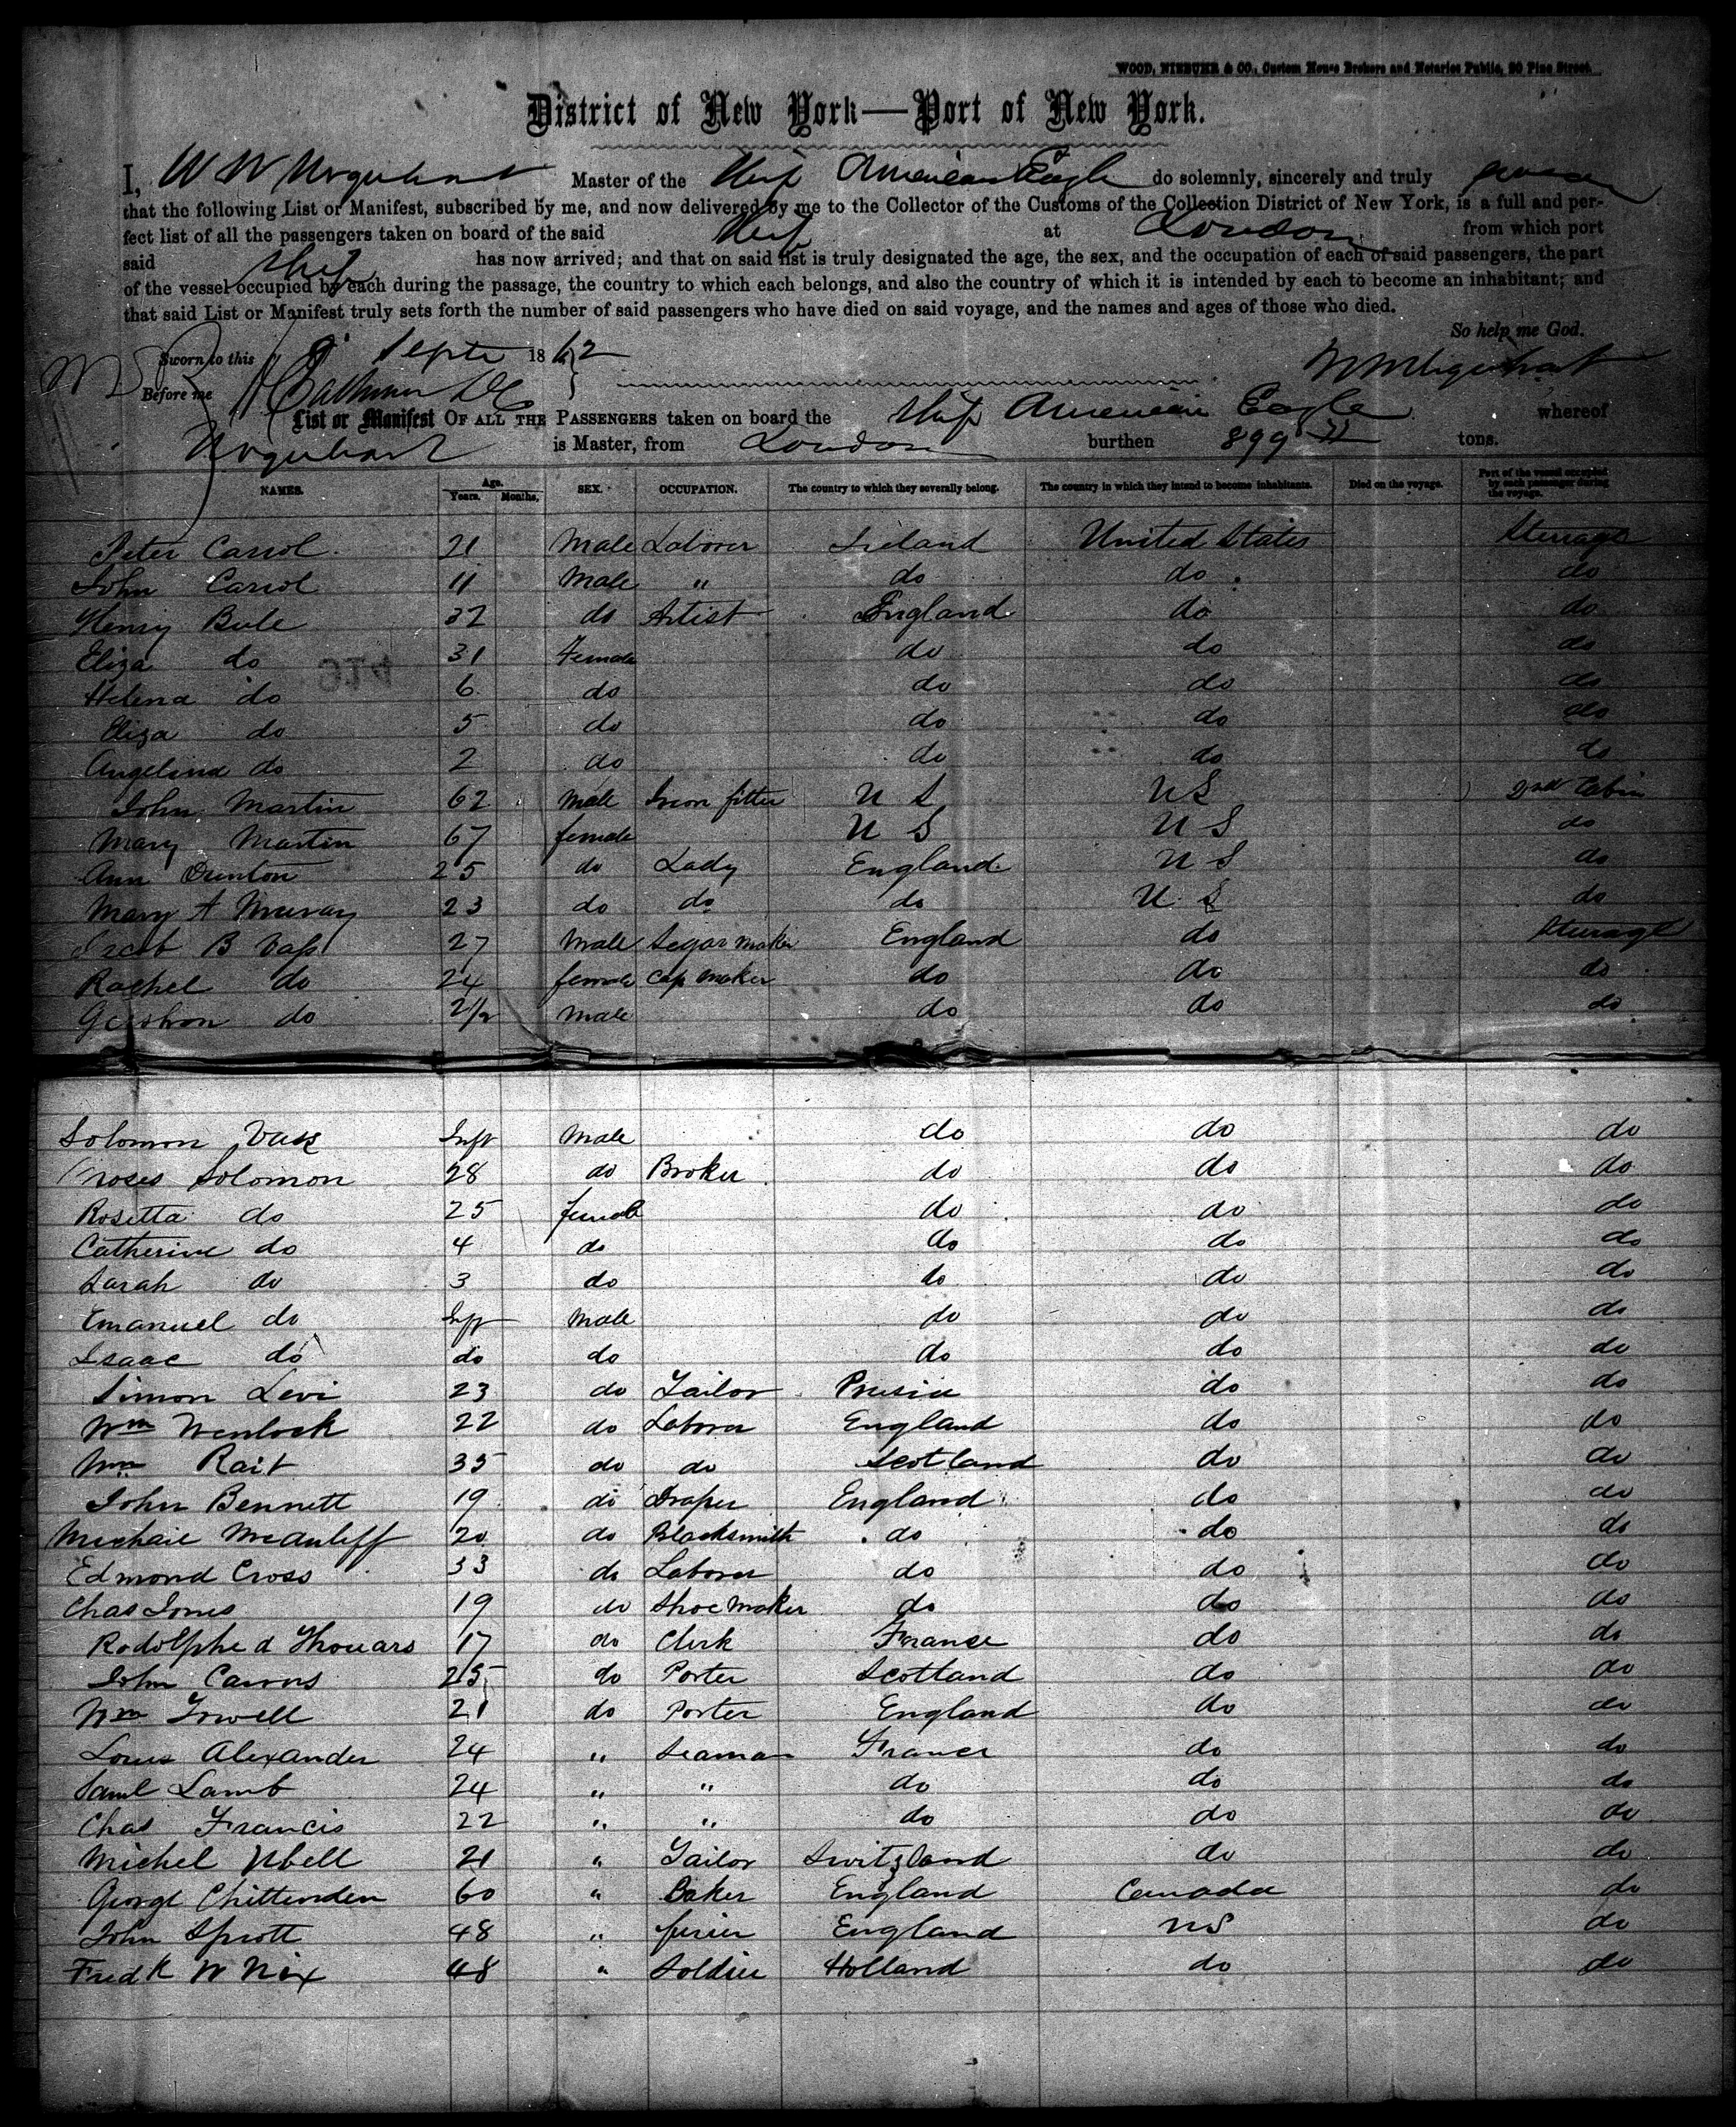 WOOD, NIEBUHR & CO., Custom House Brokers and Notaries Public, 20 Pine Street.
District of New York—Port of New York.
I, W W Urquhart Master of the Ship American Eagle do solemnly, sincerely and truly swear
that the following List or Manifest, subscribed by me, and now delivered by me to the Collector of the Customs of the Collection District of New York, is a full and per-
fect list of all the passengers taken on board of the said Ship at London from which port
said Ship has now arrived; and that on said list is truly designated the age, the sex, and the occupation of each of said passengers, the part
of the vessel occupied by each during the passage, the country to which each belongs, and also the country of which it is intended by each to become an inhabitant; and
that said List or Manifest truly sets forth the number of said passengers who have died on said voyage, and the names and ages of those who died.
So help me God.
Sworn to this Septr 1862
W W Urquhart
Before me
List or Manifest OF ALL THE PASSENGERS taken on board the Ship American Eagle whereof
Urquhart is Master, from London burthen 899 tons.
NAMES. Age. Years. Months. SEX. OCCUPATION. The country to which they severally belong. The country in which they intend to become inhabitants. Died on the voyage. Part of the vessel occupied by each passenger during the voyage.
Peter Carrol 21 Male Laborer Ireland United States Steerage
John Carrol 11 Male " do do do
Henry Bule 32 do Artist England do do
Eliza do 31 Female do do do
Helena do 6 do do do do
Eliza do 5 do do do do
Angelina do 2 do do do do
John Martin 62 Male Iron fitter U S U S 2nd Cabin
Mary Martin 67 female U S U S do
Ann 25 do Lady England U S do
Mary A Murray 23 do do do U S do
Jacob B Vass 27 Male Segar maker England do Steerage
Rachel do 24 female Cap maker do do do
Gershon do 2/12 Male do do do
Solomon Vass Inft Male do do do
Moses Solomon 28 do Broker do do do
Rosetta do 25 female do do do
Catherine do 4 do do do do
Sarah do 3 do do do do
Emanuel do Inft Male do do do
Isaac do do do do do do
Simon Levi 23 do Tailor Prusia do do
Wm Wenlock 22 do Laborer England do do
Wm Rait 35 do do Scotland do do
John Bennett 19 do Draper England do do
Michail McAuliff 20 do Blacksmith do do do
Edmond Cross 33 do Laborer do do do
Chas Jones 19 do Shoe Maker do do do
Rodolphe d Thouars 17 do Clerk France do do
John Cairns 25 do Porter Scotland do do
Wm Trwell 21 do Porter England do do
Louis Alexander 24 " Seaman France do do
Saml Lamb 24 " " do do do
Chas Francis 22 " " do do do
Michel Ubell 21 " Tailor Switzland do do
George Chittenden 60 " Baker England Canada do
John Sprott 48 " furier England US do
Fredk W Nix 48 " Soldier Holland do do